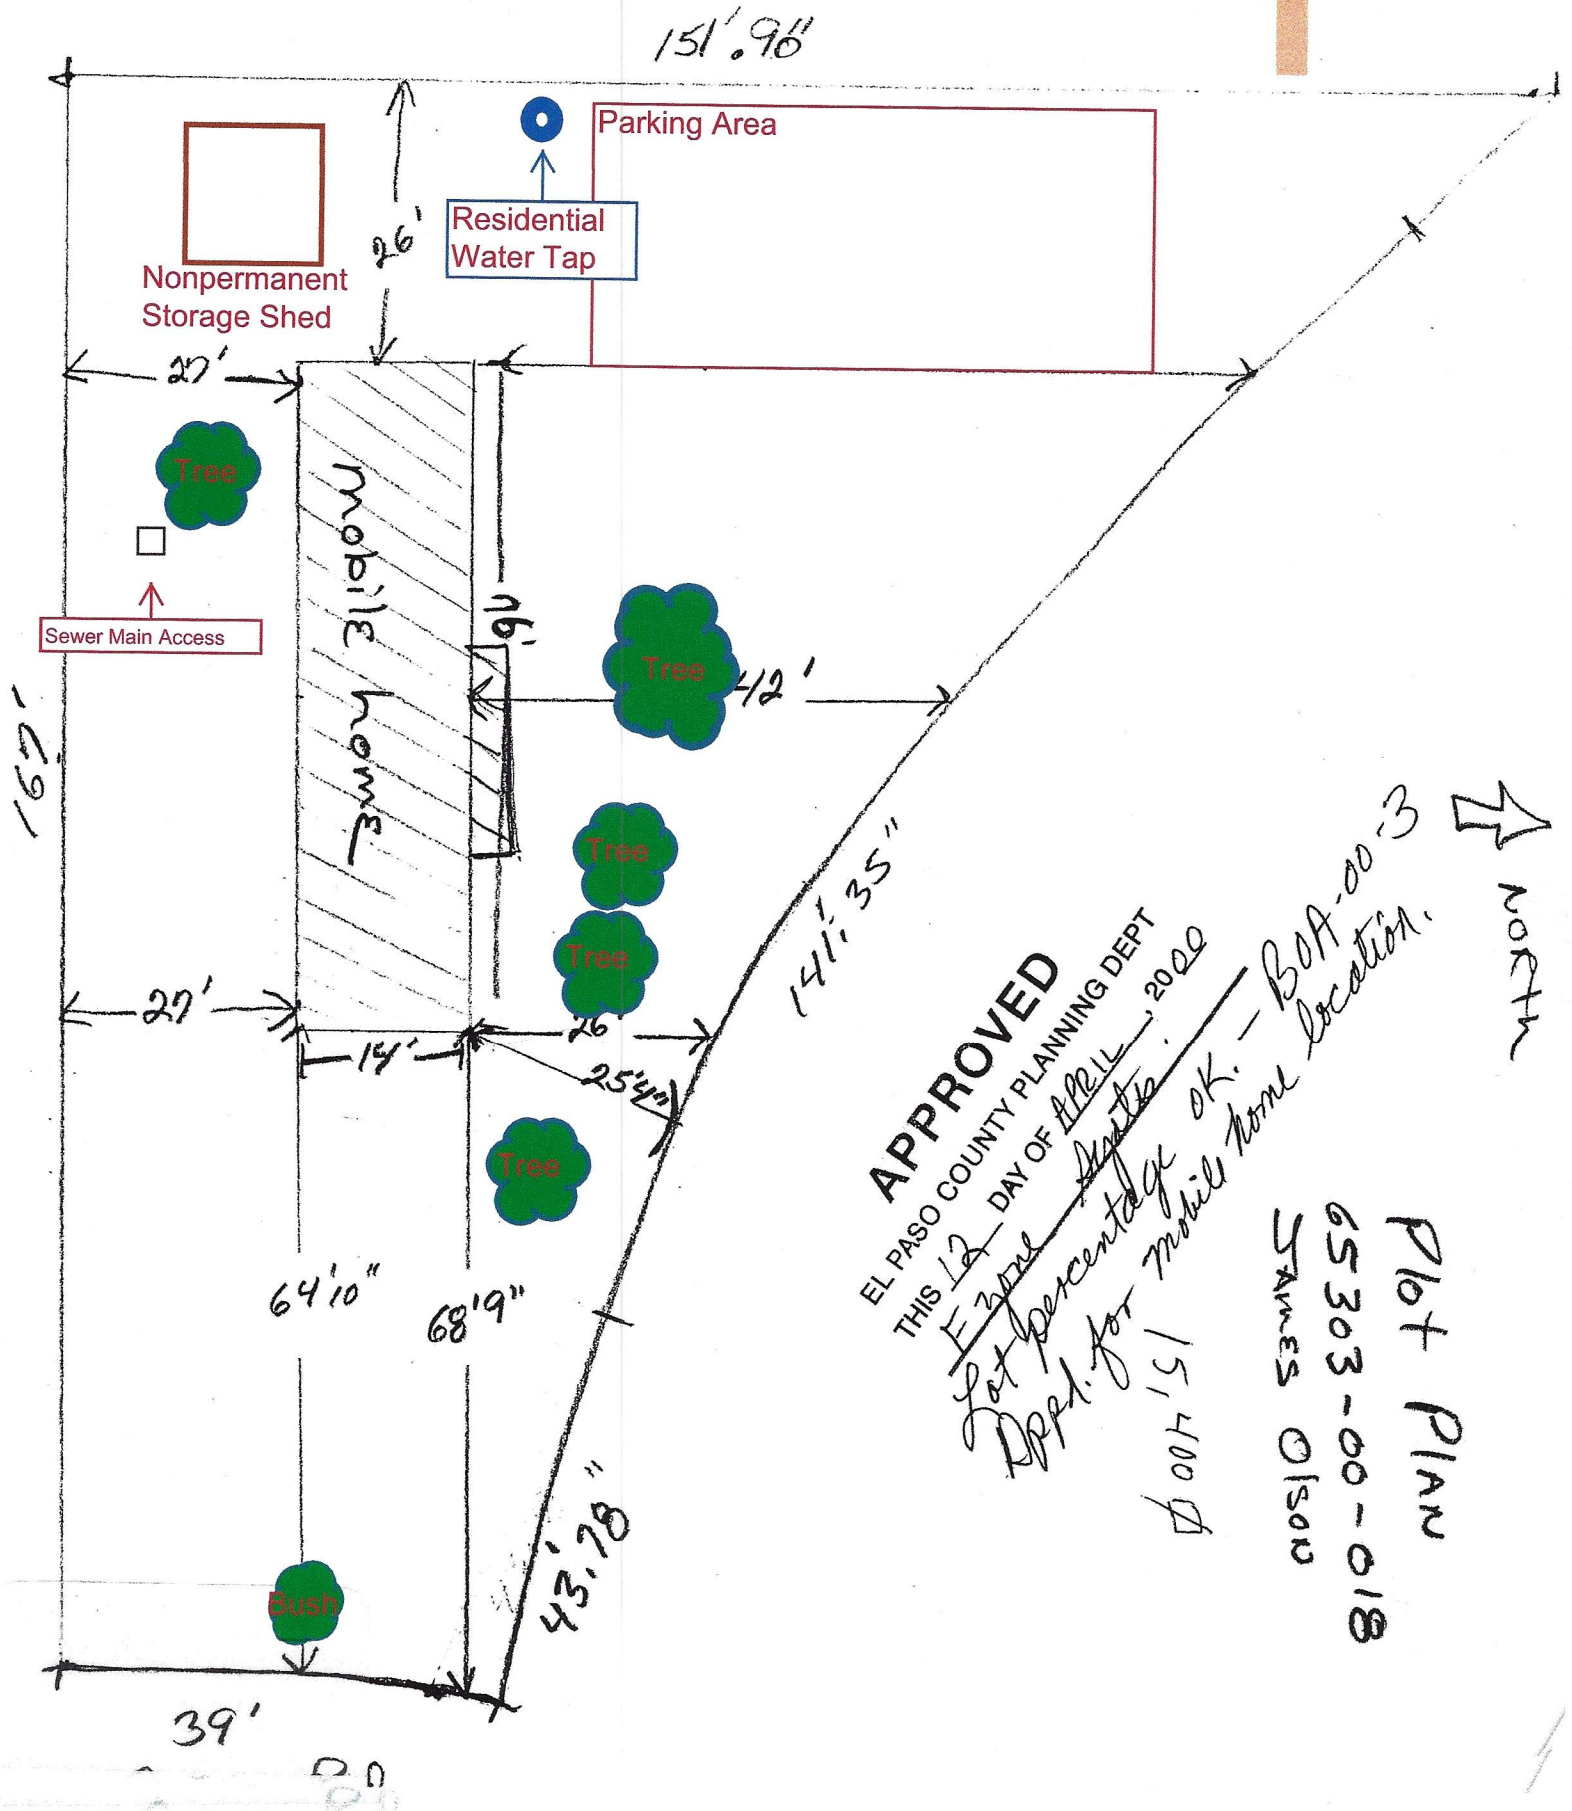 151'.90"
Parking Area
Residential
Water Tap
26'
Nonpermanent
Storage Shed
27'
Tree
Sewer Main Access
mobile home
76'
Tree
42'
167'
Tree
Tree
141'.35"
North
27'
26'
14'
25'4"
Tree
APPROVED
EL PASO COUNTY PLANNING DEPT
THIS 12 DAY OF APRIL, 2000
Lot percentage OK. — BOA-00-3
Appd. for mobile home location.
15,400
Plot PLAN
65303-00-018
JAMES OlsoN
64'10"
68'9"
43'.78"
Bush
39'